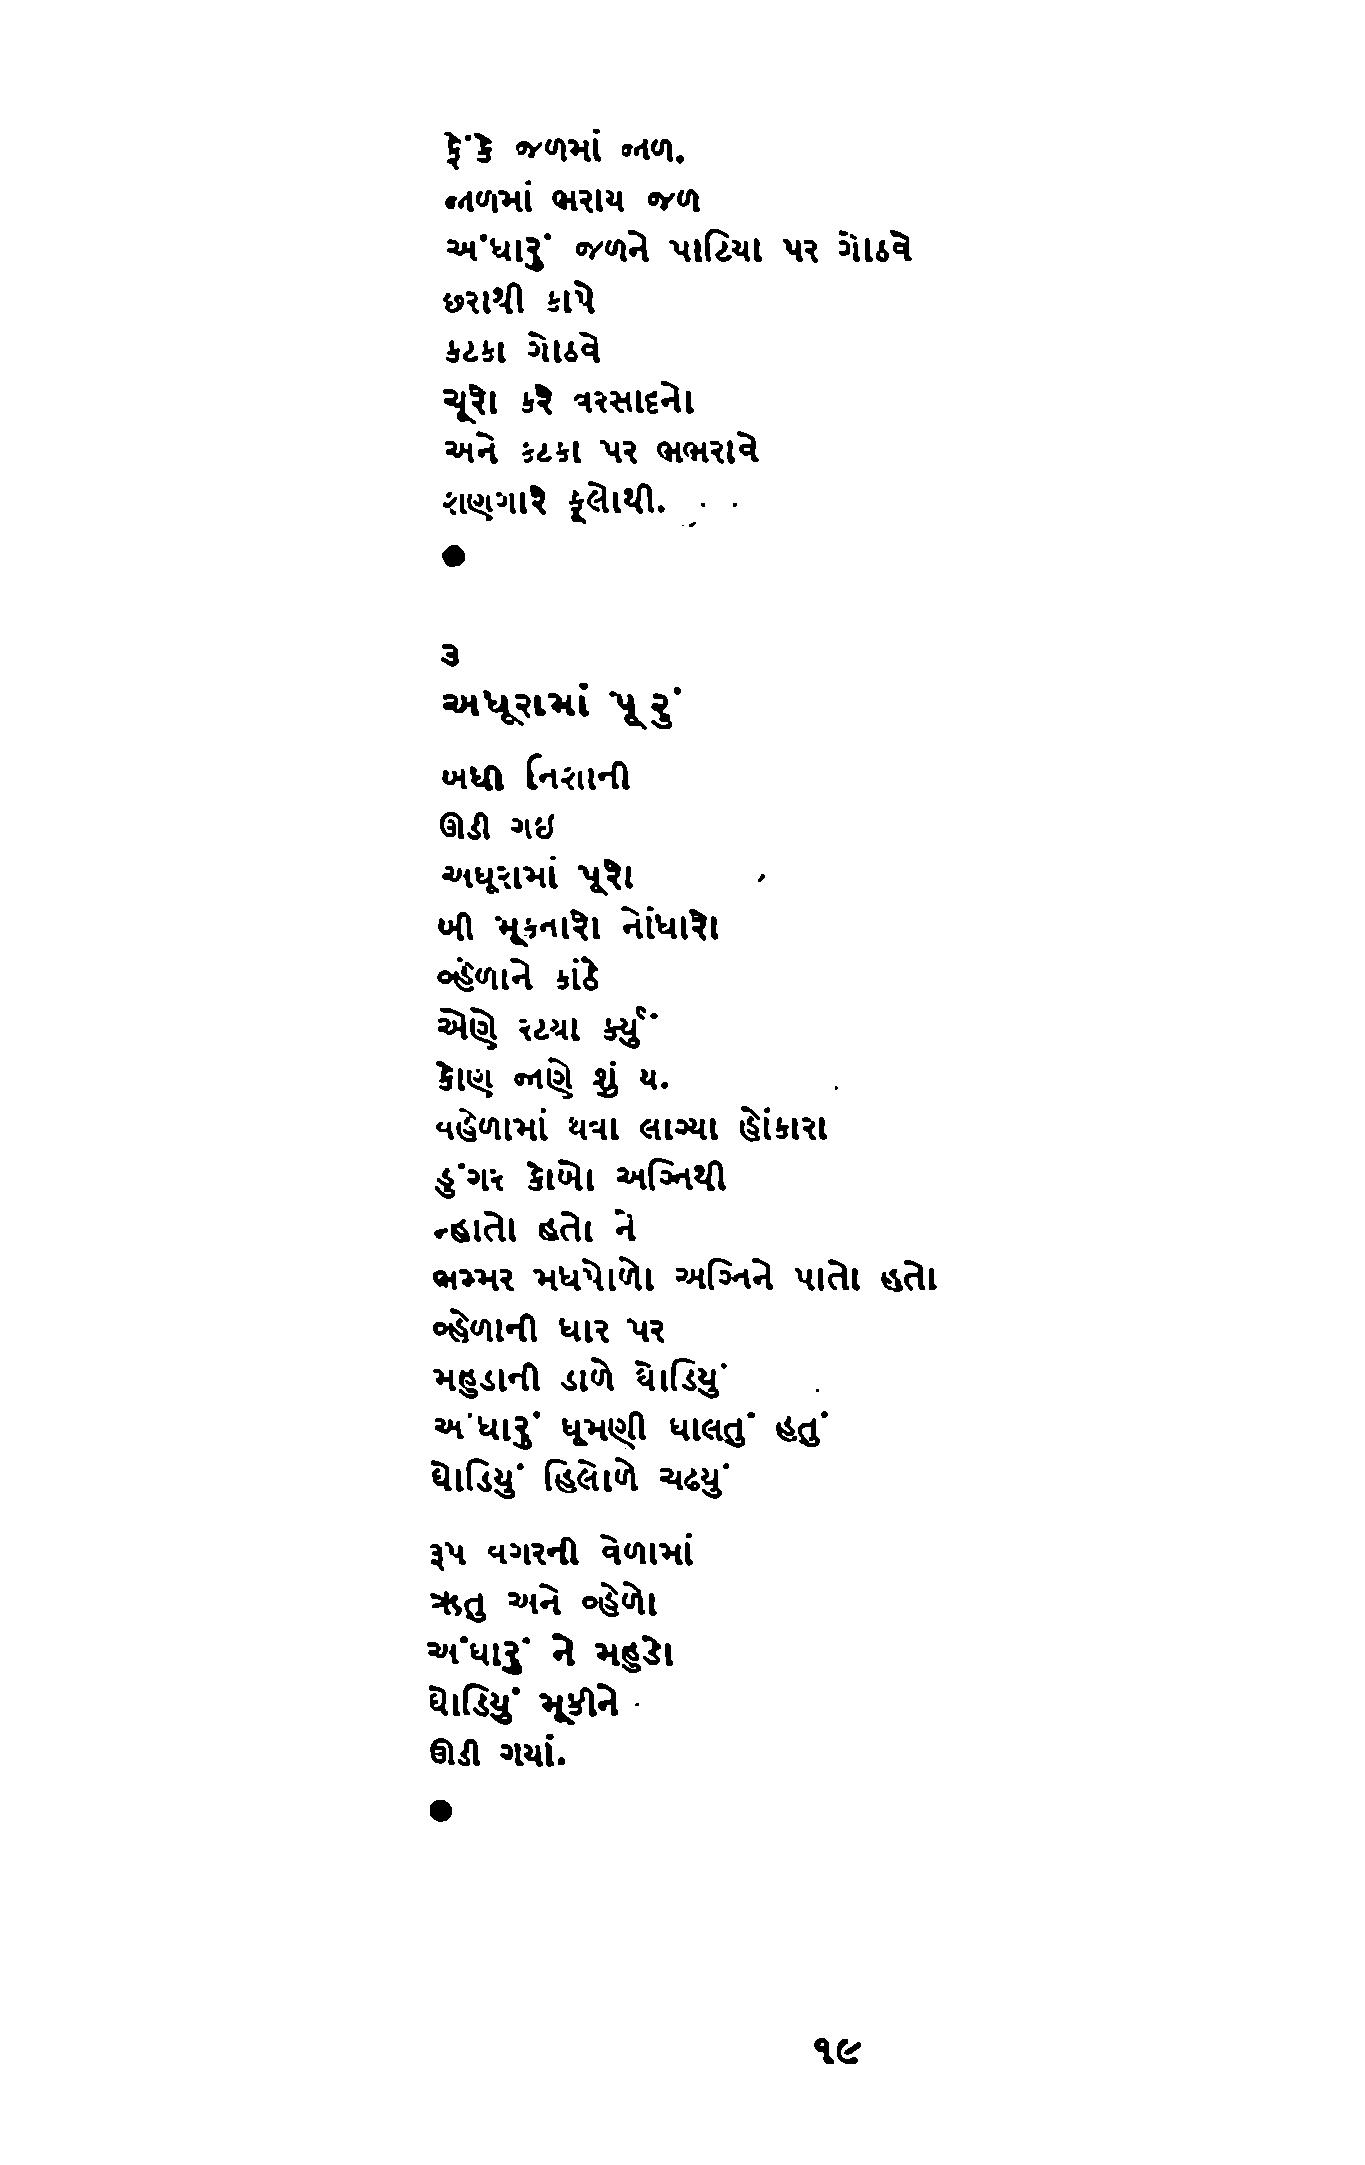 ફેંકે જળમાં જાળ.
જાળમાં ભરાય જળ
અંધારું જળને પાટિયા પર ગોઠવે
છરાથી કાપે
કટકા ગોઠવે
ચૂરો કરે વરસાદનો
અને કટકા પર ભભરાવે
શણગારે ફૂલોથી.
●
૩
અધૂરામાં પૂરું
બધી નિશાની
ઊડી ગઇ
અધૂરામાં પૂરો
બી મૂકનારો નોંધારો
વ્હેળાને કાંઠે
એણે રટયા ર્ક્યું
કોણ જાણે શું ય.
વહેળામાં થવા લાગ્યા હોંકારા
ડુંગર કોબો અગ્નિથી
ન્હાતો હતો ને
ભમ્મર મધપોળો અગ્નિને પાતો હતો
વ્હેળાની ધાર પર
મહુડાની ડાળે ઘોડિયું
અંધારું ઘૂમણી ઘાલતું હતું
ઘોડિયું હિલોળે ચઢયું
રૂપ વગરની વેળામાં
ઋતુ અને વ્હેળો
અંધારું ને મહુડો
ઘોડિયું મૂકીને
ઊડી ગયાં.
●
૧૯